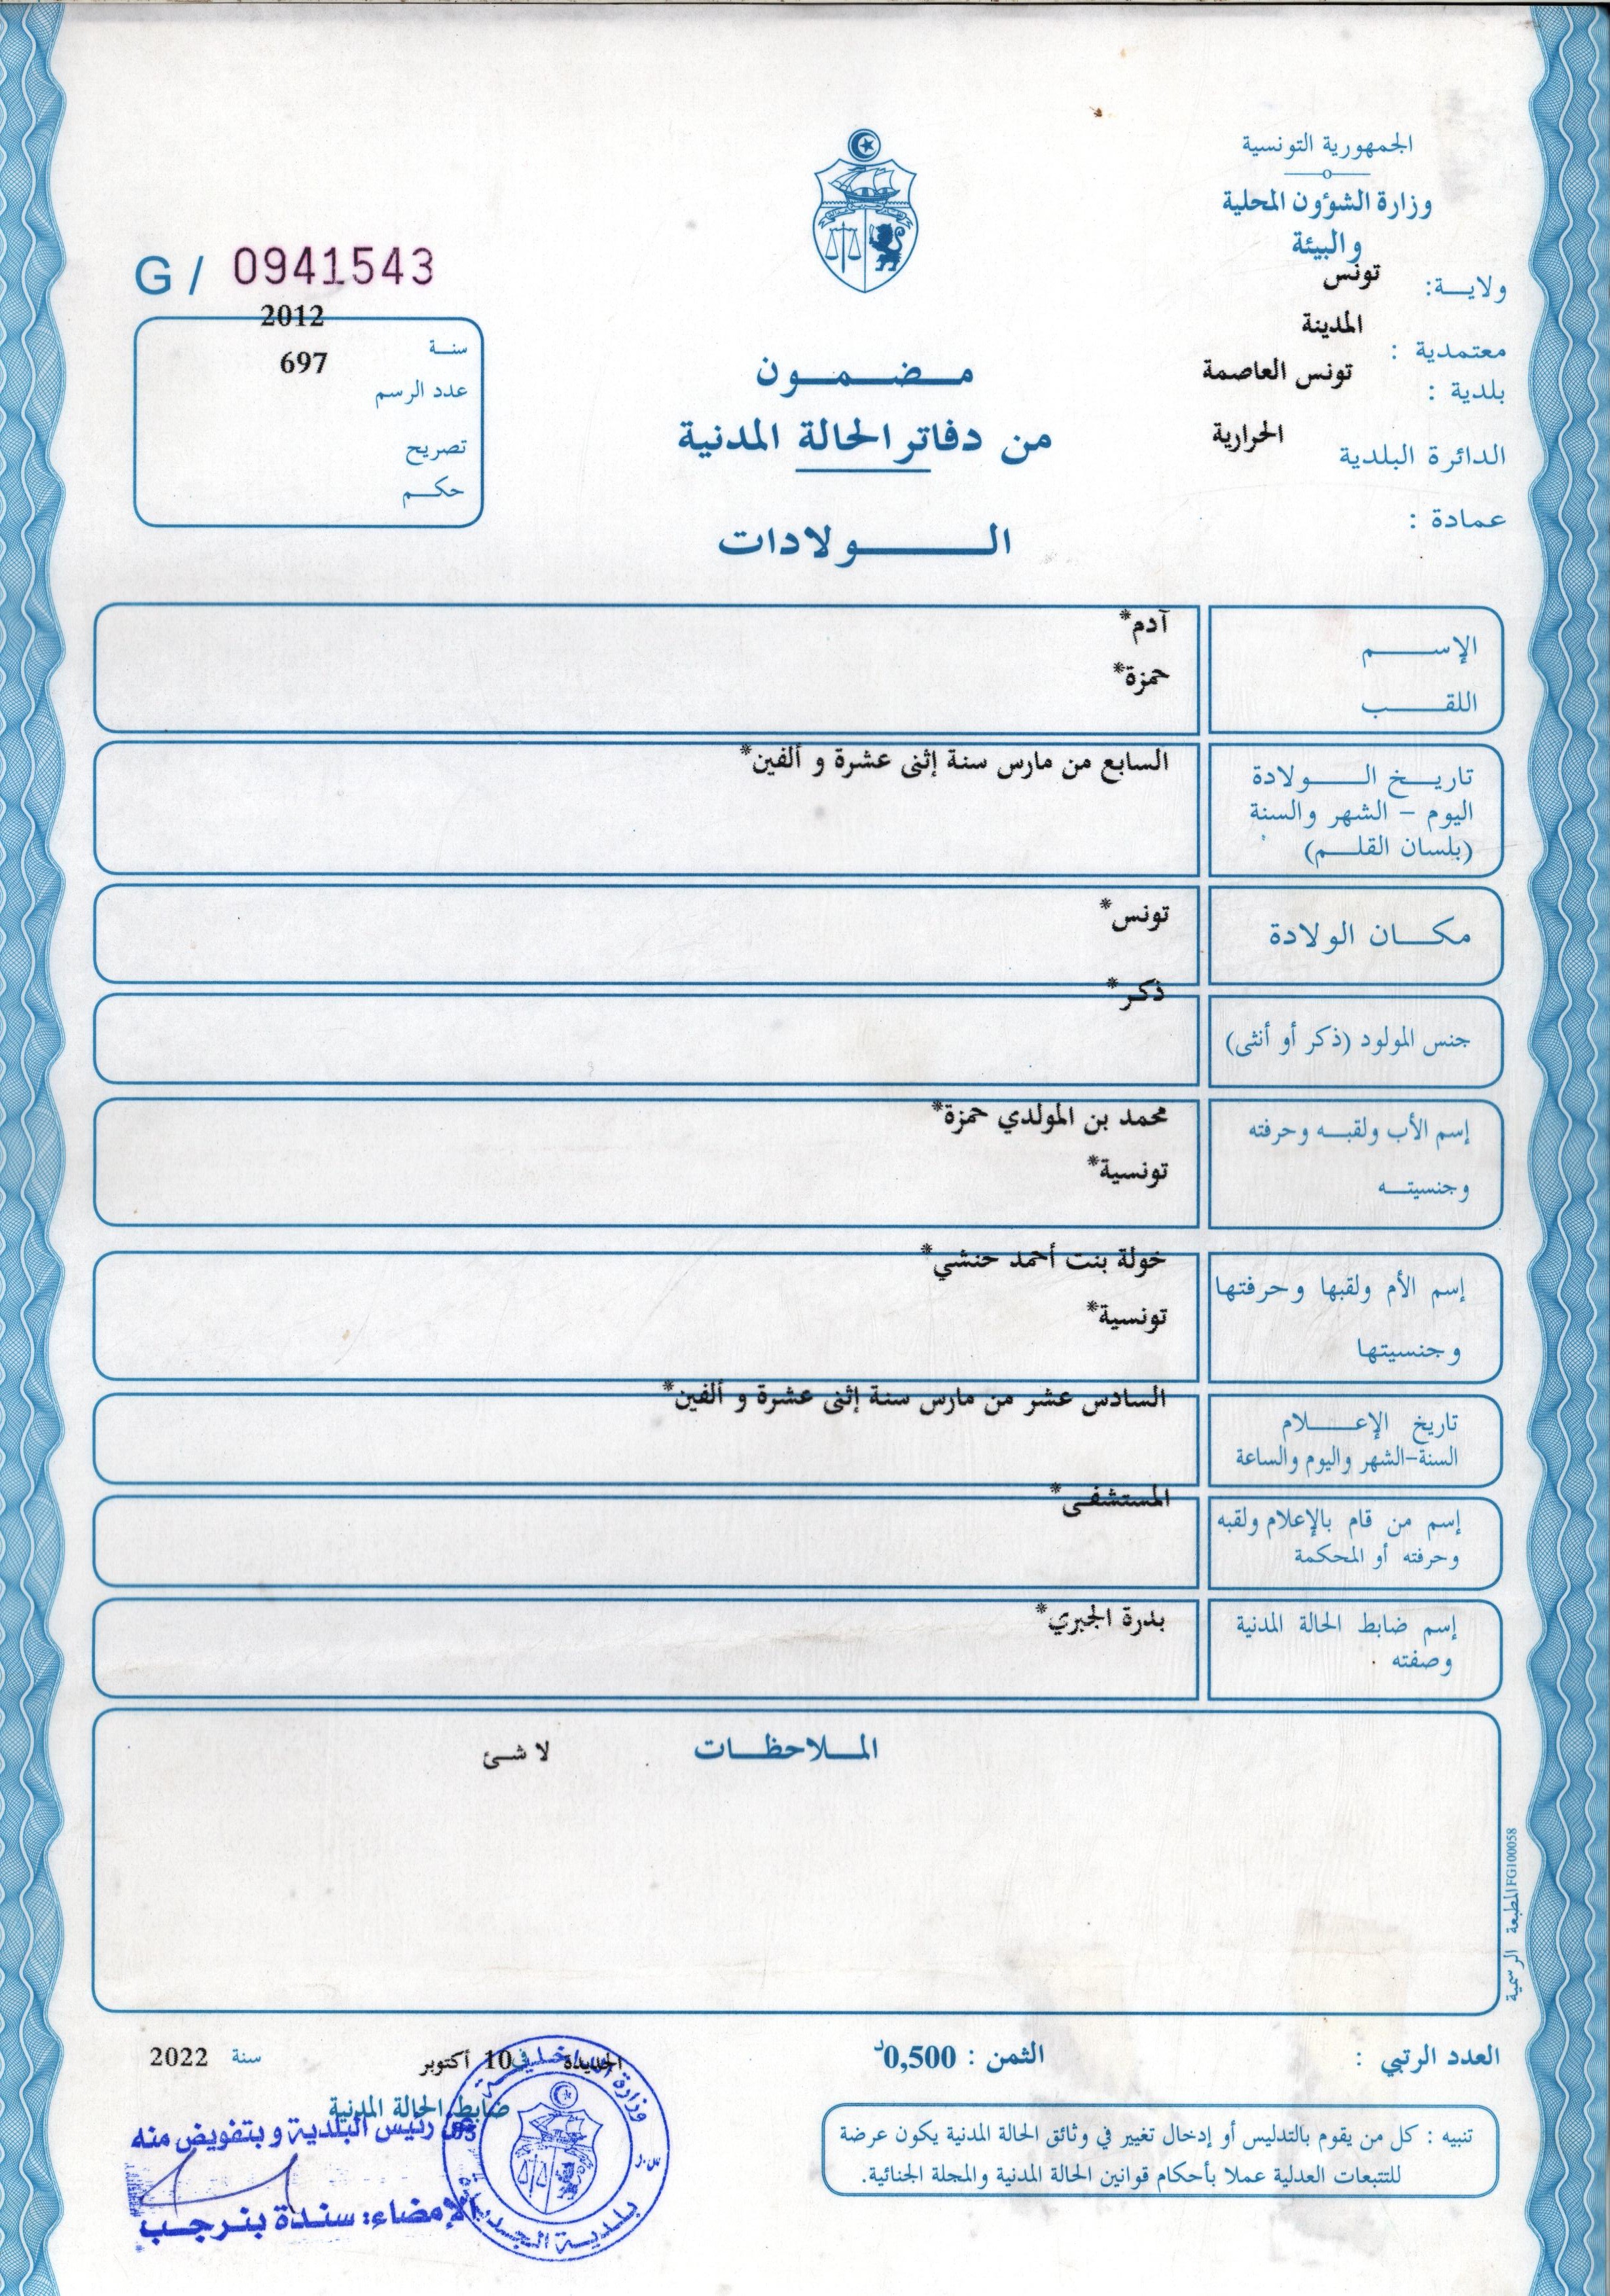 الجمهورية التونسية
وزارة الشؤون المحلية
والبيئة
ولايـــة: تونس
معتمدية : المدينة
بلدية : تونس العاصمة
الدائرة البلدية الحرارية
عمادة :
G / 0941543
سنـة 2012
عدد الرسم 697
تصريح
حكـم
مـضـمـون
من دفاتر الحالة المدنية
الـــولادات
الإســـم آدم*
اللقـــب حمزة*
تاريـخ الــولادة السابع من مارس سنة إثنى عشرة و ألفين*
اليوم – الشهر والسنة
(بلسان القلـم)
مكـــان الولادة تونس*
جنس المولود (ذكر أو أنثى) ذكر*
إسم الأب ولقبـه وحرفته محمد بن المولدي حمزة*
وجنسيتـه تونسية*
إسم الأم ولقبها وحرفتها خولة بنت أحمد حنشي*
وجنسيتها تونسية*
تاريخ الإعـــلام السادس عشر من مارس سنة إثنى عشرة و ألفين*
السنة-الشهر واليوم والساعة
إسم من قام بالإعلام ولقبه المستشفى*
وحرفته أو المحكمة
إسم ضابط الحالة المدنية بدرة الجبري*
وصفته
المـلاحظـات لا شئ
المطبعة الرسمية FG100058
العدد الرتبي :
الثمن : 0,500د
الجديدة في 10 أكتوبر سنة 2022
ضابط الحالة المدنية
عن رئيس البلدية وبتفويض منه
الإمضاء: سندة بنرجب
وزارة الداخلية
بلدية الجديدة
تنبيه : كل من يقوم بالتدليس أو إدخال تغيير في وثائق الحالة المدنية يكون عرضة
للتتبعات العدلية عملا بأحكام قوانين الحالة المدنية والمجلة الجنائية.